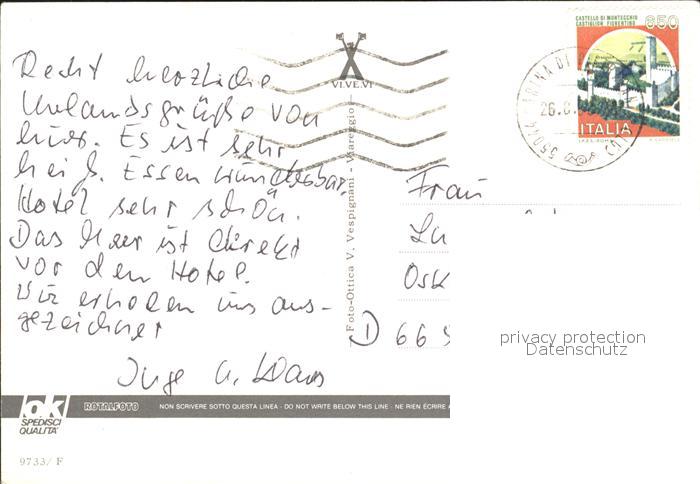 CASTELLO DI MONTECCHIO
CASTIGLION FIORENTINO
650
ITALIA
55044 MARINA DI
26.8.
VI.VE.VI
Recht herzliche
Urlaubsgrüße von
hier. Es ist sehr
heiß. Essen wunderbar,
Hotel sehr schön.
Das Meer ist direkt
vor dem Hotel.
Wir erholen uns aus-
gezeichnet
Inge u. Klaus
Foto-Ottica V. Vespignani - Viareggio
Frau
Lu
Osk
D 66
privacy protection
Datenschutz
ok
SPEDISCI
QUALITA'
ROTALFOTO
NON SCRIVERE SOTTO QUESTA LINEA - DO NOT WRITE BELOW THIS LINE - NE RIEN ÉCRIRE
9733/ F